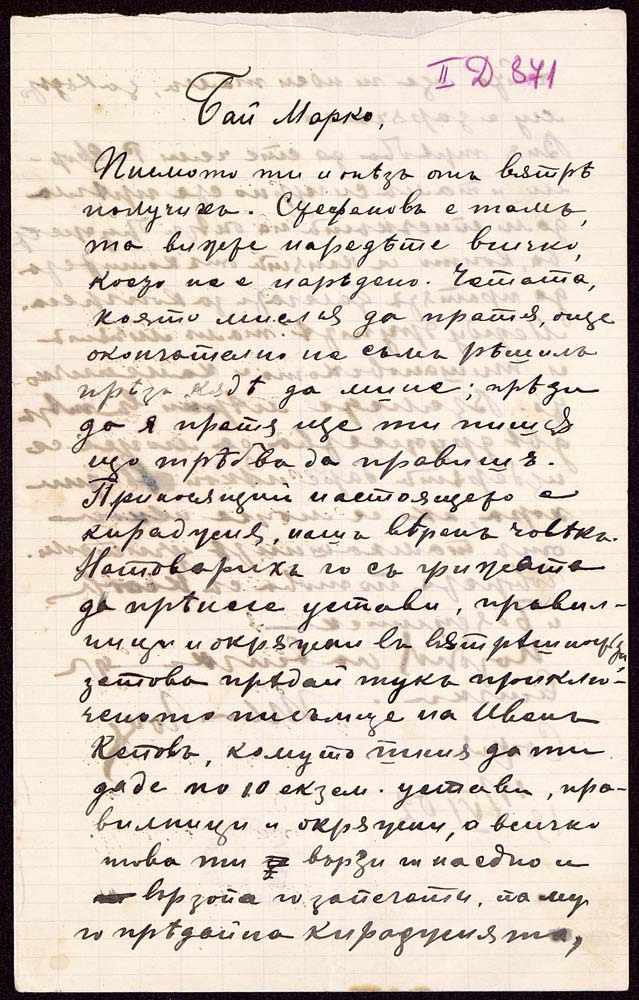 II Д 871
Бай Марко,
Писмото ти и онѣзъ отъ вѫтрѣ
получихъ. Стефановъ е тамъ,
та вижте наредѣте всичко,
което не е нарѣдено. Четата,
която мисля да пратя, още
окончателно не съмъ рѣшилъ
прѣзъ кадѣ да мине; прѣди
да я пратя ще ти пиша
що трѣбва да правишъ.
Приносящий настоящето е
кираджия, нашъ вѣренъ човѣкъ.
Натоварихъ го съ грижата
да прѣнесе устави, правил-
ници и окрѫжни въ вѫтрѣшность,
затова прѣдай тукъ приклю-
ченото писъмце на Иванъ
Кеповъ, комуто пишѫ да ти
даде по 10 екзем. устави, пра-
вилници и окрѫжни, а всичко
това ти вържи на едно и
вързопа го запечати, па му
го прѣдай на кираджията,